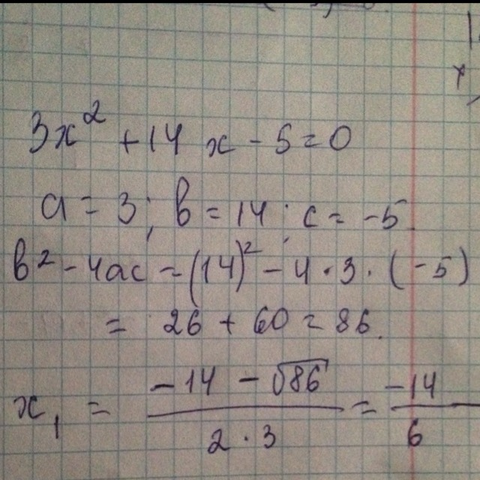 3x² + 14x - 5 = 0
a = 3; b = 14; c = -5
b² - 4ac = (14)² - 4 · 3 · (-5)
= 26 + 60 = 86.
x₁ = (-14 - √86) / (2 · 3) = -14 / 6